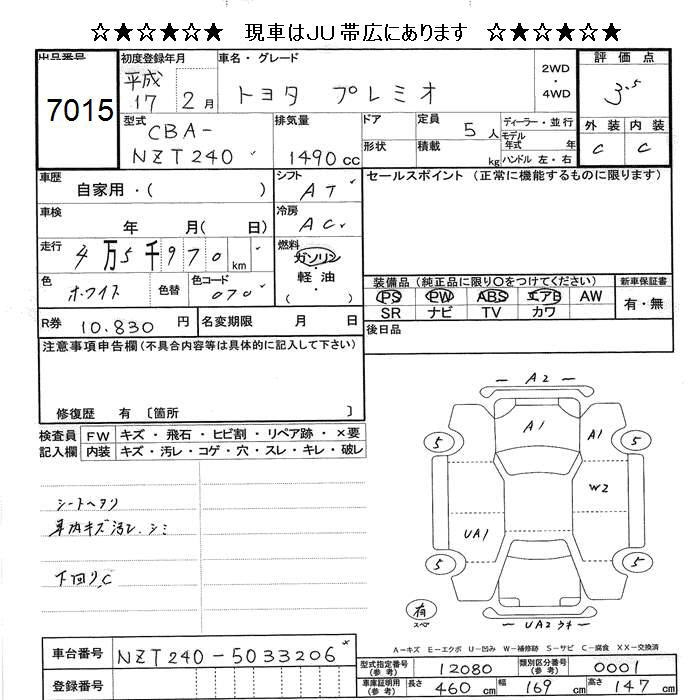 ☆★☆★☆★☆ 現車はJU帯広にあります ☆★☆★☆★☆
出品番号 7015
初度登録年月 平成17 2月
車名・グレード トヨタ プレミオ 2WD・4WD
評価点 3.5
外装 内装
C C
型式 CBA-NZT240
排気量 1490cc
ドア
形状
定員 5人
積載 kg
ディーラー・並行
モデル年式 年
ハンドル 左・右
車歴 自家用・( )
シフト AT
車検 年 月( 日)
冷房 AC
走行 4万5千970km
燃料 ガソリン・軽・油 ( )
色 ホワイト 色替 色コード 070
R券 10.830円 名変期限 月 日
セールスポイント (正常に機能するものに限ります)
装備品(純正品に限り○をつけてください) 新車保証書
PS PW ABS エアB AW 有・無
SR ナビ TV カワ
後日品
注意事項申告欄(不具合内容等は具体的に記入して下さい)
修復歴 有〔箇所 〕
検査員記入欄
FW キズ・飛石・ヒビ割・リペア跡・×要
内装 キズ・汚レ・コゲ・穴・スレ・キレ・破レ
シートヘタリ
車内キズ汚レ、シミ
下回リ、C
A2
A1
A1
5
5
W2
UA1
5
5
有
スペア
UA2 ウキ
A-キズ E-エクボ U-凹み W-補修跡 S-サビ C-腐食 XX-交換済
車台番号 NZT240-5033206
登録番号
型式指定番号(参考) 12080 類別区分番号(参考) 0001
車庫証明用(参考) 長さ 460cm 幅 169cm 高さ 147cm